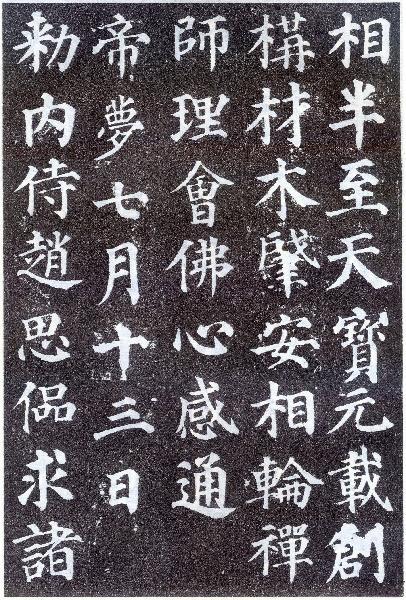 相半至天寶元載創
構材木肇安相輪禪
師理會佛心感通
帝夢七月十三日
勑內侍趙思偘求諸